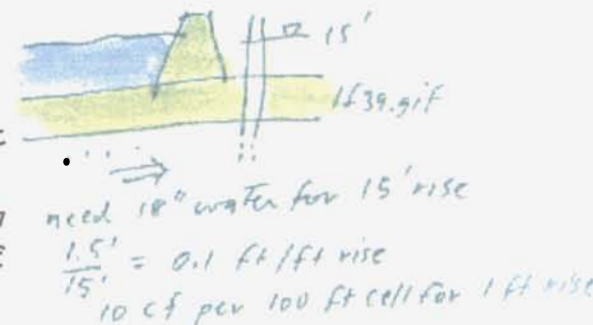 15'
lf39.gif
need 18" water for 15' rise
1.5' / 15' = 0.1 ft/ft rise
10 cf per 100 ft cell for 1 ft rise